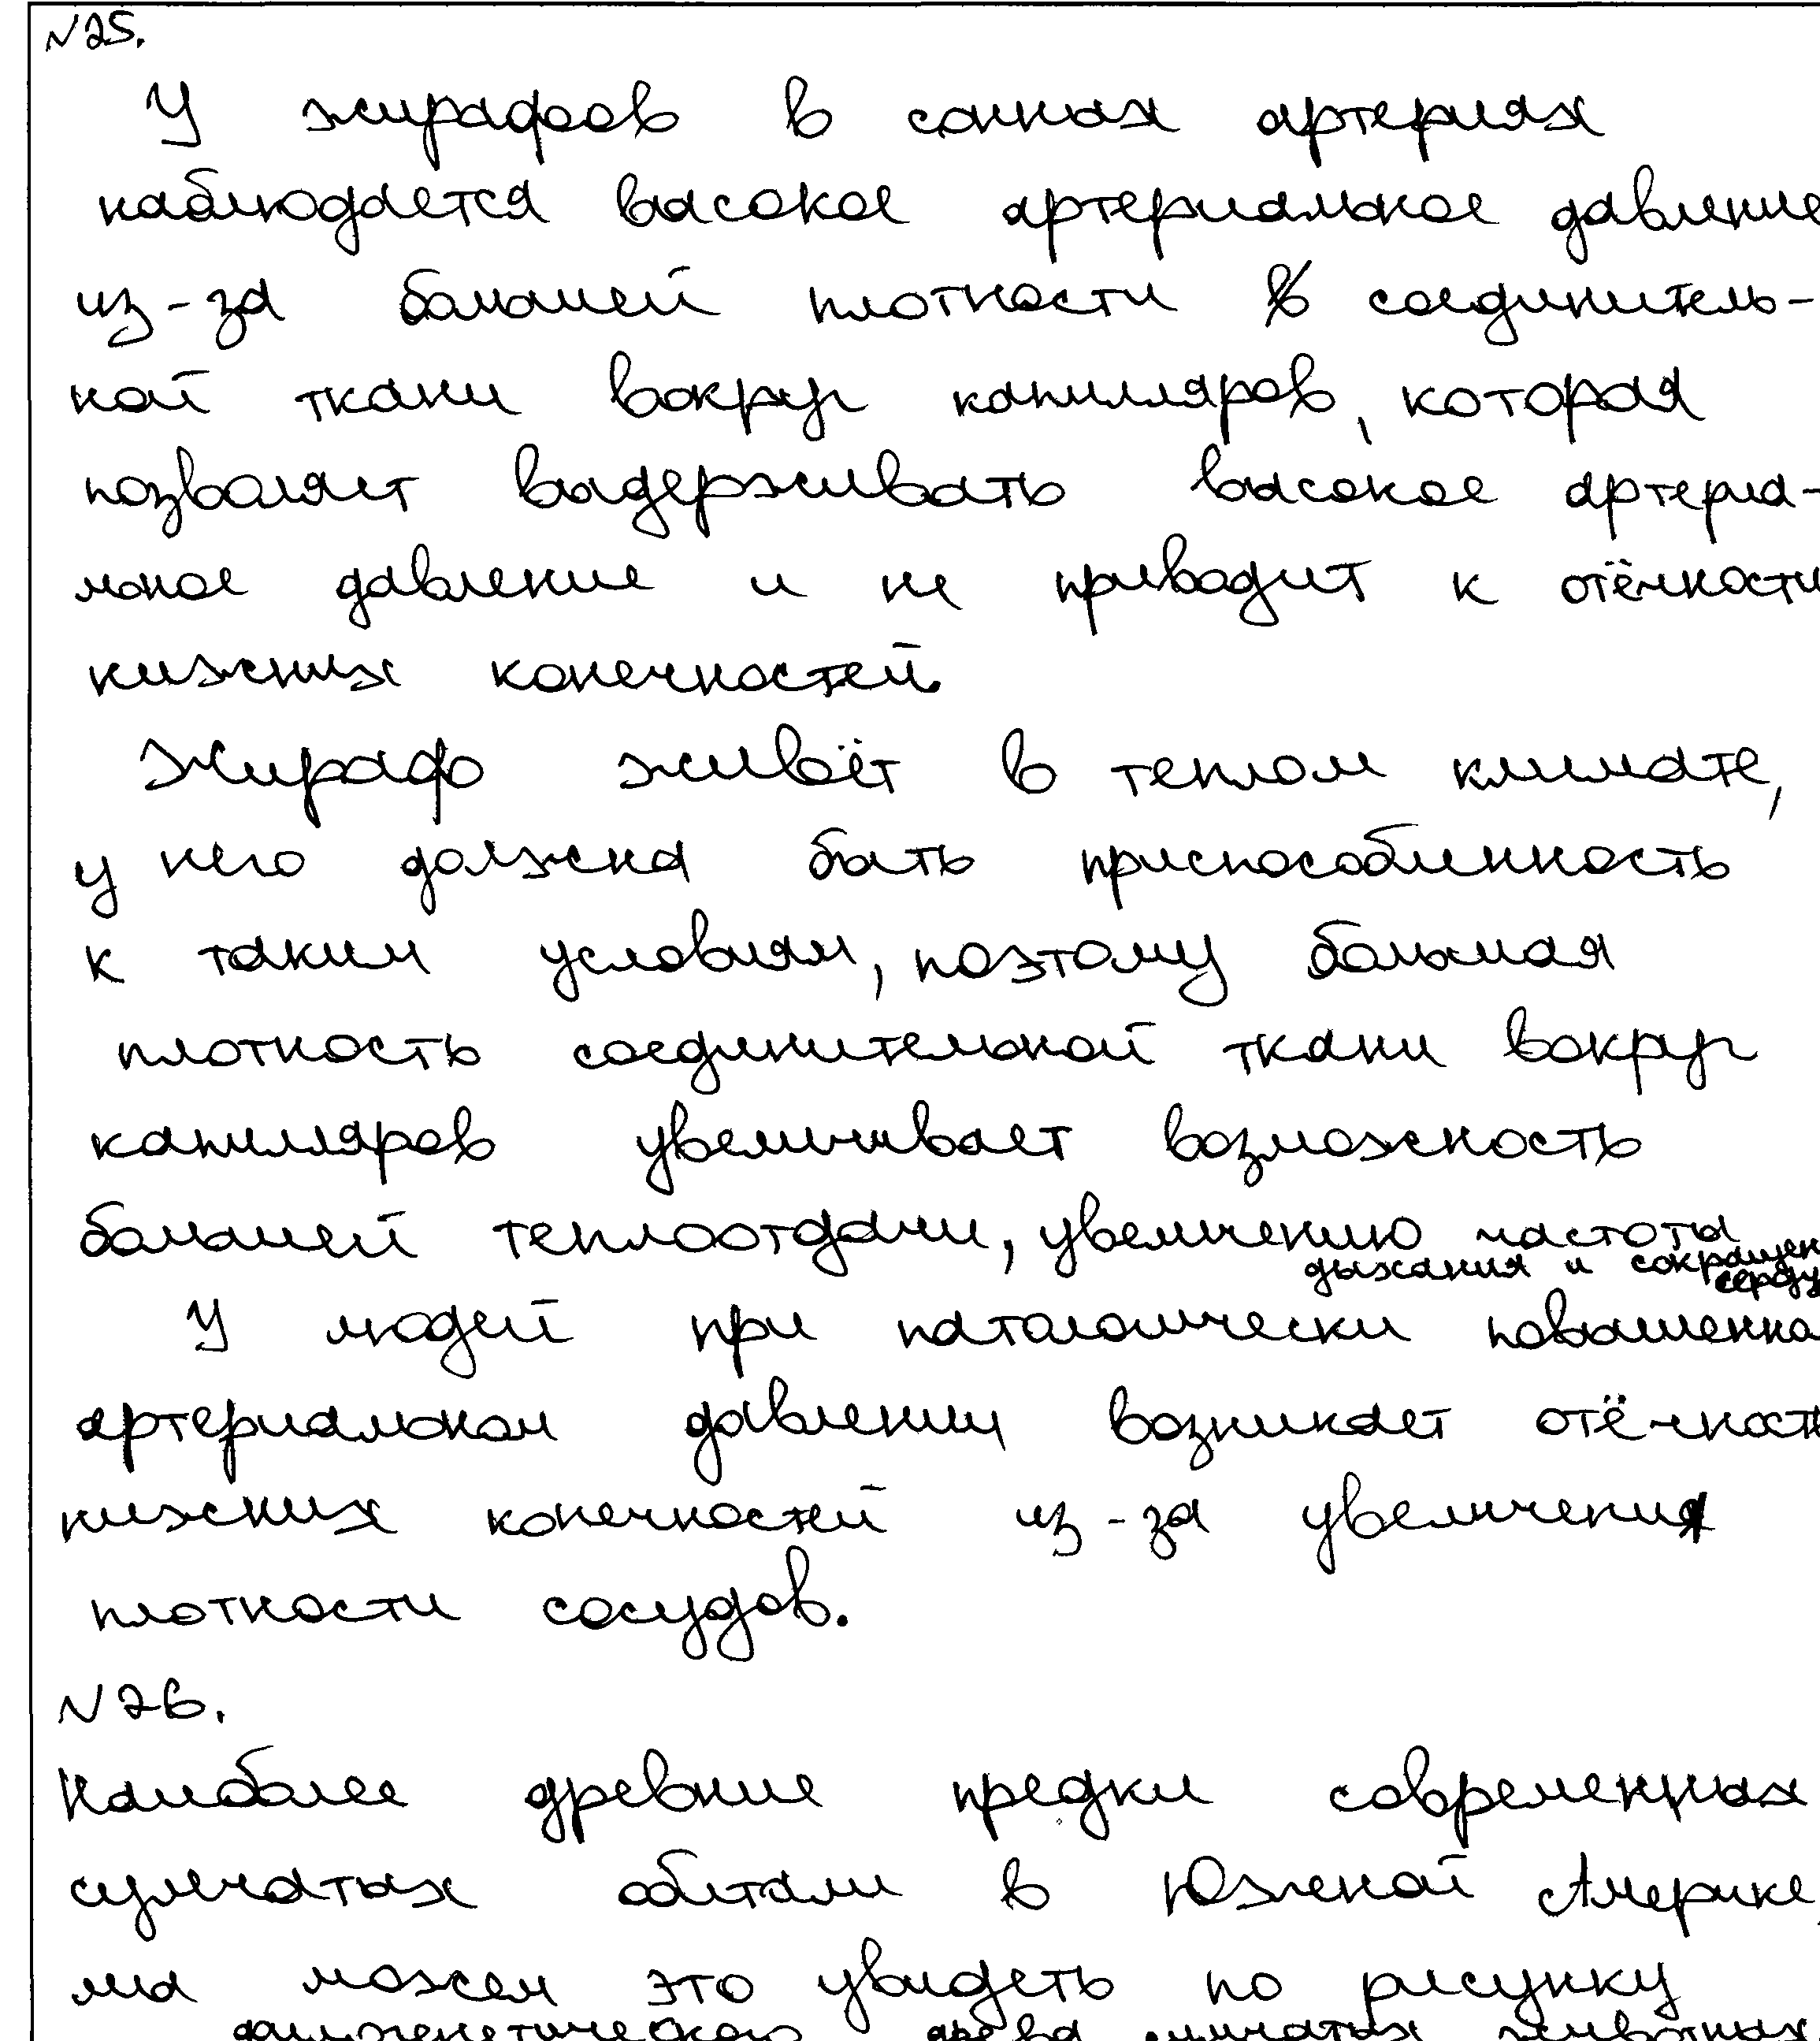 N25.
У жирафов в сонных артериях
наблюдается высокое артериальное давление
из-за большей плотности соединитель-
ной ткани вокруг капилляров, которая
позволяет выдерживать высокое артериа-
льное давление и не приводит к отёчности
нижних конечностей.
Жираф живёт в теплом климате,
у него должна быть приспособленность
к таким условиям, поэтому большая
плотность соединительной ткани вокруг
капилляров увеличивает возможность
большей теплоотдачи, увеличению частоты
дыхания и сокращен
сердц
У людей при патологически повышенно
артериальном давлении возникает отёчность
нижних конечностей из-за увеличения
плотности сосудов.
N26.
Наиболее древние предки современных
сумчатых обитали в Южной Америке,
мы можем это увидеть по рисунку
филогенетического древа сумчатых животных